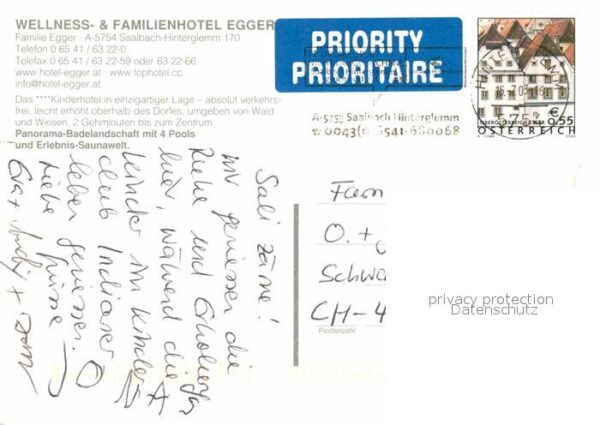 WELLNESS- & FAMILIENHOTEL EGGER
Familie Egger · A-5754 Saalbach-Hinterglemm 170
Telefon 0 65 41 / 63 22-0
Telefax 0 65 41 / 63 22-59 oder 63 22-66
www.hotel-egger.at · www.tophotel.cc
info@hotel-egger.at
Das ****Kinderhotel in einzigartiger Lage – absolut verkehrs-
frei, leicht erhöht oberhalb des Dorfes, umgeben von Wald
und Wiesen. 2 Gehminuten bis zum Zentrum.
Panorama-Badelandschaft mit 4 Pools
und Erlebnis-Saunawelt.
PRIORITY
PRIORITAIRE
A-5753 Saalbach Hinterglemm
6541-680068
€ 0,55
ÖSTERREICH
Sali zäme!
wir geniessen die
Ruhe und Erholung
hier, während die
Kinder im Kinder
club Indianer
leben geniessen.
Liebe Grüsse
Eva +
Fam
O. +
Schwa
CH-4
Postleitzahl
privacy protection
Datenschutz